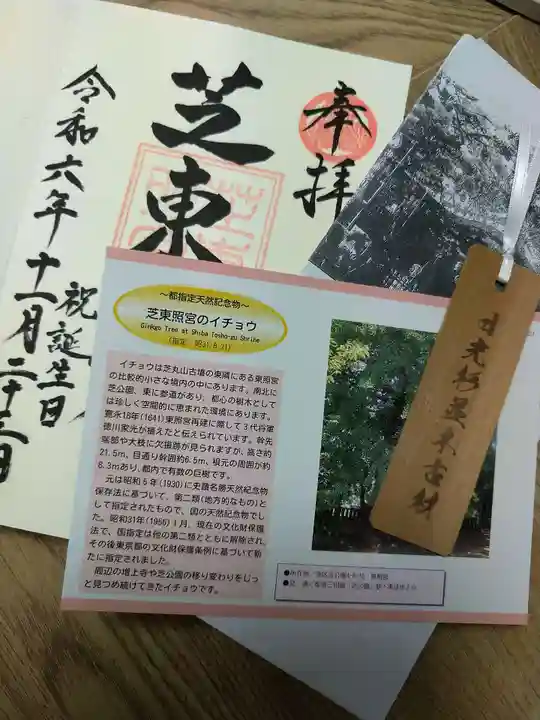 奉拝
芝東
令和六年十一月二十三日
祝誕生日
~都指定天然記念物~
芝東照宮のイチョウ
Ginkgo Tree at Shiba Tosho-gu Shrine
(指定 昭31.8.21)
イチョウは芝丸山古墳の東隣にある東照宮
の比較的小さな境内の中にあります。南北に
芝公園、東に参道があり、都心の樹木として
は珍しく空間的に恵まれた環境にあります。
寛永18年(1641)東照宮再建に際して3代将軍
徳川家光が植えたと伝えられています。幹先
端部や大枝に欠損跡が見られますが、高さ約
21.5m、目通り幹囲約6.5m、根元の周囲が約
8.3mあり、都内で有数の巨樹です。
元は昭和5年(1930)に史蹟名勝天然紀念物
保存法に基づいて、第二類(地方的なもの)と
して指定されたもので、国の天然記念物でし
た。昭和31年(1956)1月、現在の文化財保護
法で、国指定は他の第二類とともに解除され、
その後東京都の文化財保護条例に基づいて新
たに指定されました。
周辺の増上寺や芝公園の移り変わりをじっ
と見つめ続けてきたイチョウです。
日光杉並木古材